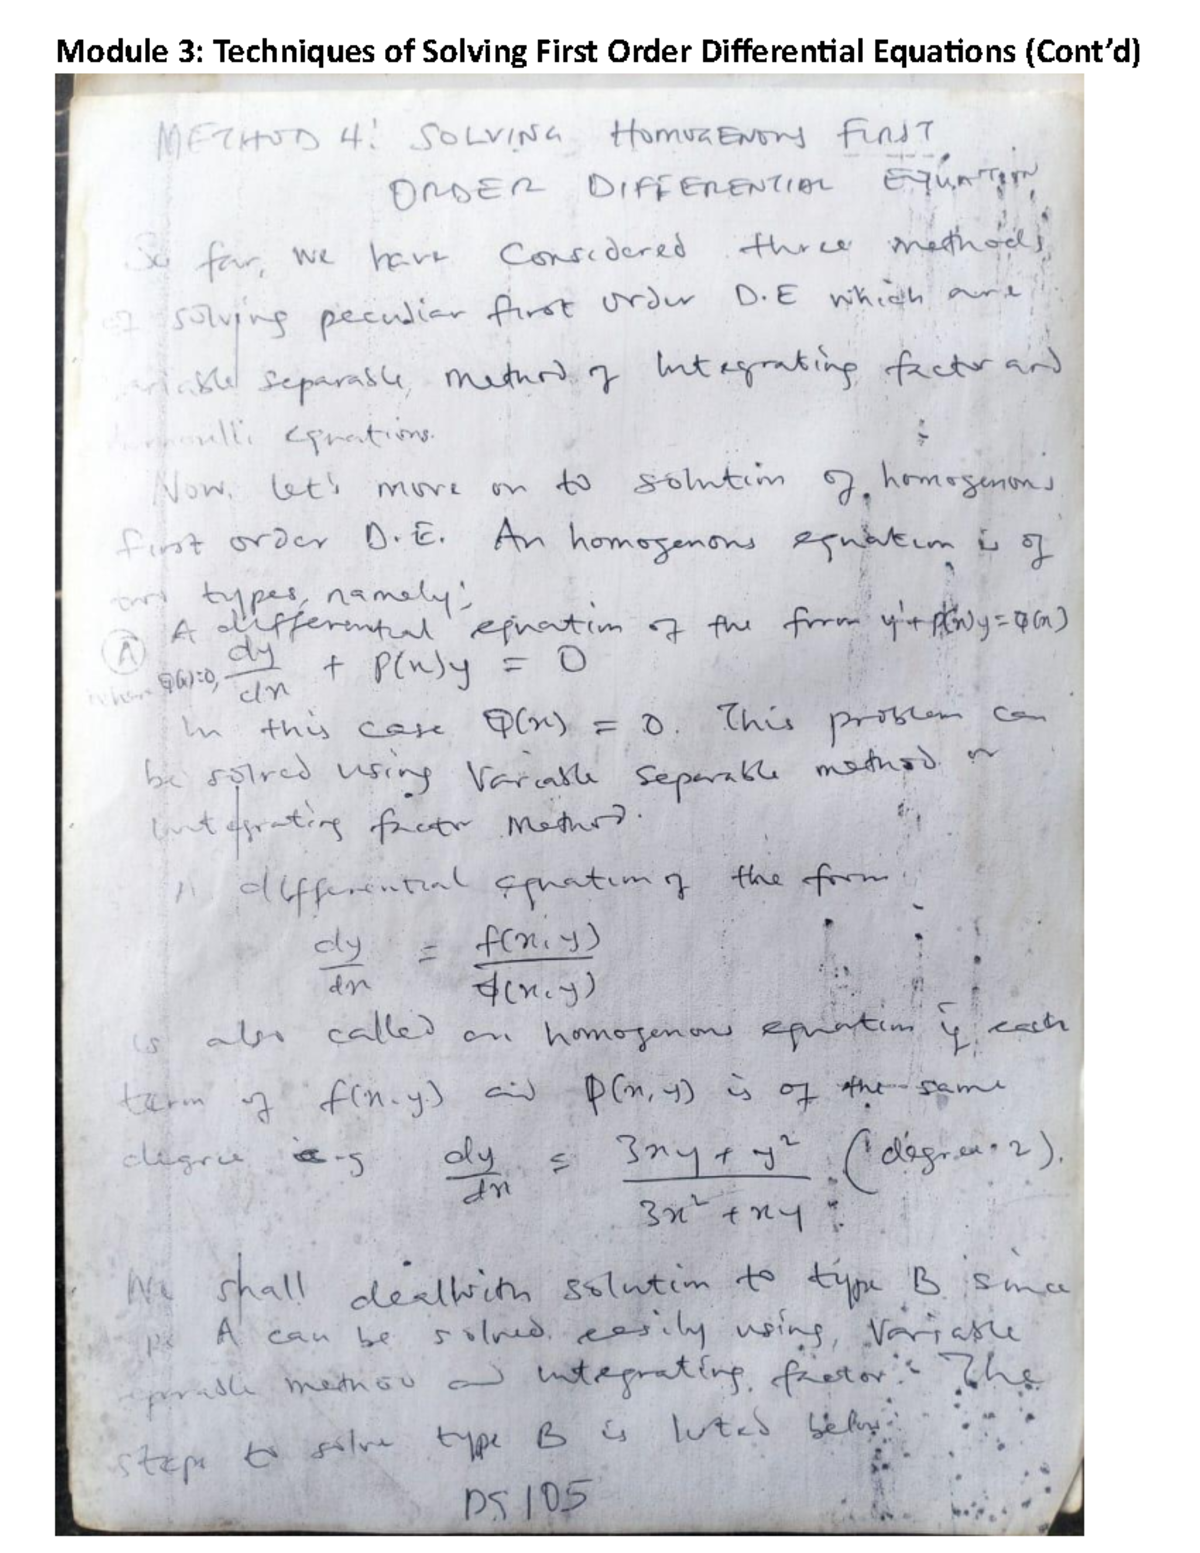 Module 3: Techniques of Solving First Order Differential Equations (Cont'd)
METHOD 4: SOLVING HOMOGENOUS FIRST
ORDER DIFFERENTIAL EQUATION
So far, we have Considered three methods
of solving peculiar first order D.E which are
variable separable, method of Integrating factor and
equations.
Now, let's move on to solution of homogenous
first order D.E. An homogenous equation is of
two types, namely:
(A) A differential equation of the form y'+p(x)y=Q(x)
where Q(x)=0, dy/dx + P(x)y = 0
In this case Q(x) = 0. This problem can
be solved using Variable separable method or
Integrating factor Method.
A differential equation of the form
dy/dx = f(x,y)/ϕ(x,y)
is also called an homogenous equation if each
term of f(x,y) and ϕ(x,y) is of the same
degree e.g dy/dx = 3xy + y²/3x² + xy (degree=2).
We shall dealwith solution to type B since
A can be solved easily using Variable
method and integrating factor. The
steps to solve type B is listed below:
DS 105